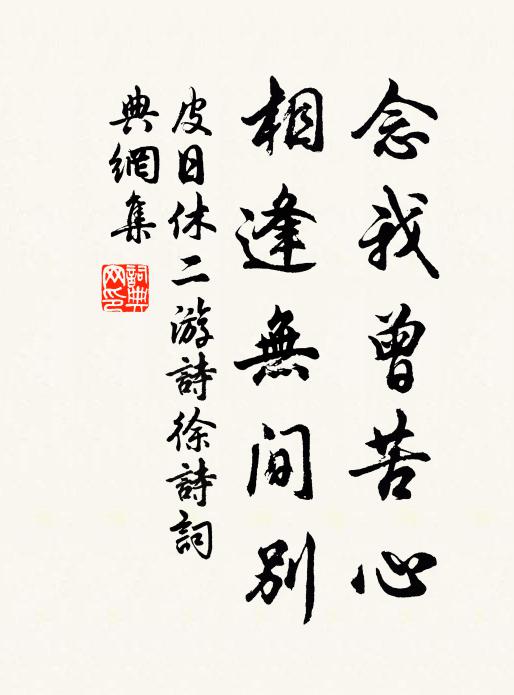 念我曾苦心
相逢無間別
皮日休二游詩徐詩詞
典網集
詞典
网印